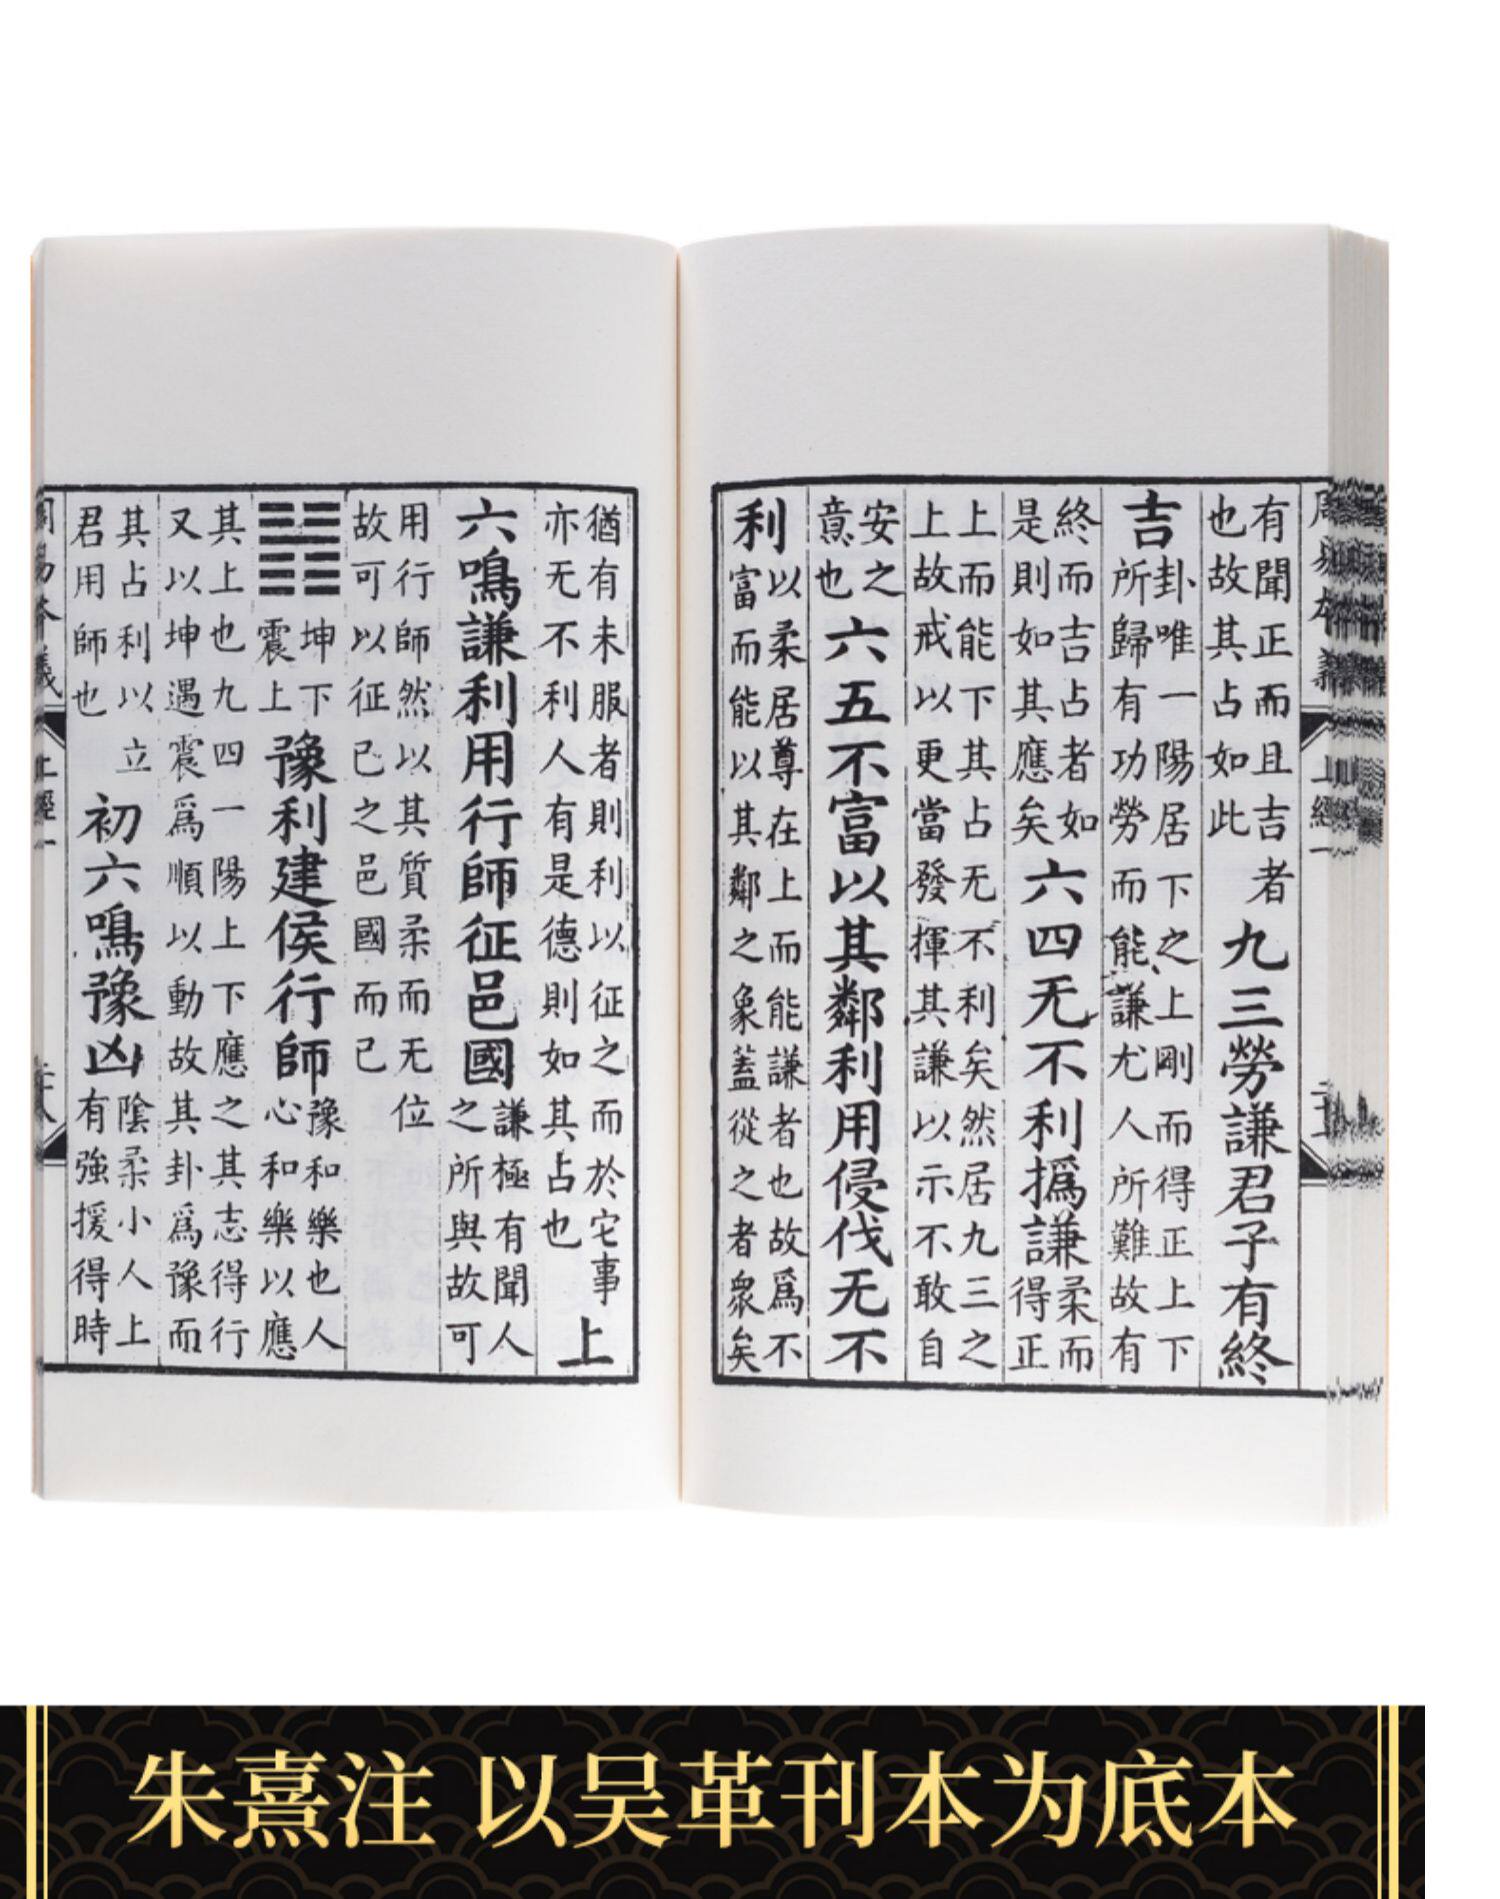 有聞正而且吉者也故其占如此九三勞謙君子有終
吉卦唯一陽居下之上剛而得正上下所歸有功勞而能謙尤人所難故有
終而吉占者如是則如其應矣六四无不利撝謙柔而得正
上而能下其占无不利矣然居九三之上故戒以更當發揮其謙以示不敢自
安之意也六五不富以其鄰利用侵伐无不
利以柔居尊在上而能謙者也故爲不富而能以其鄰之象蓋從之者衆矣
猶有未服者則利以征之而於它事亦无不利人有是德則如其占也上
六鳴謙利用行師征邑國謙極有聞人之所與故可
用行師然以其質柔而无位故可以征己之邑國而已
坤下震上豫利建侯行師豫和樂也人心和樂以應
其上也九四一陽上下應之其志得行又以坤遇震爲順以動故其卦爲豫而
其占利以立君用師也初六鳴豫凶陰柔小人上有強援得時
朱熹注 以吴革刊本为底本